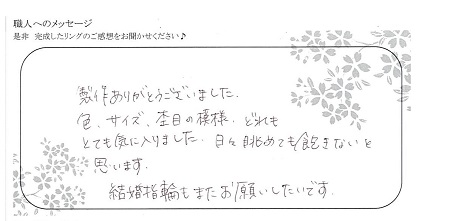 職人へのメッセージ
是非 完成したリングのご感想をお聞かせください♪
製作ありがとうございました。
色、サイズ、杢目の模様、どれも
とても気に入りました。日々眺めても飽きないと
思います。
結婚指輪もまたお願いしたいです。